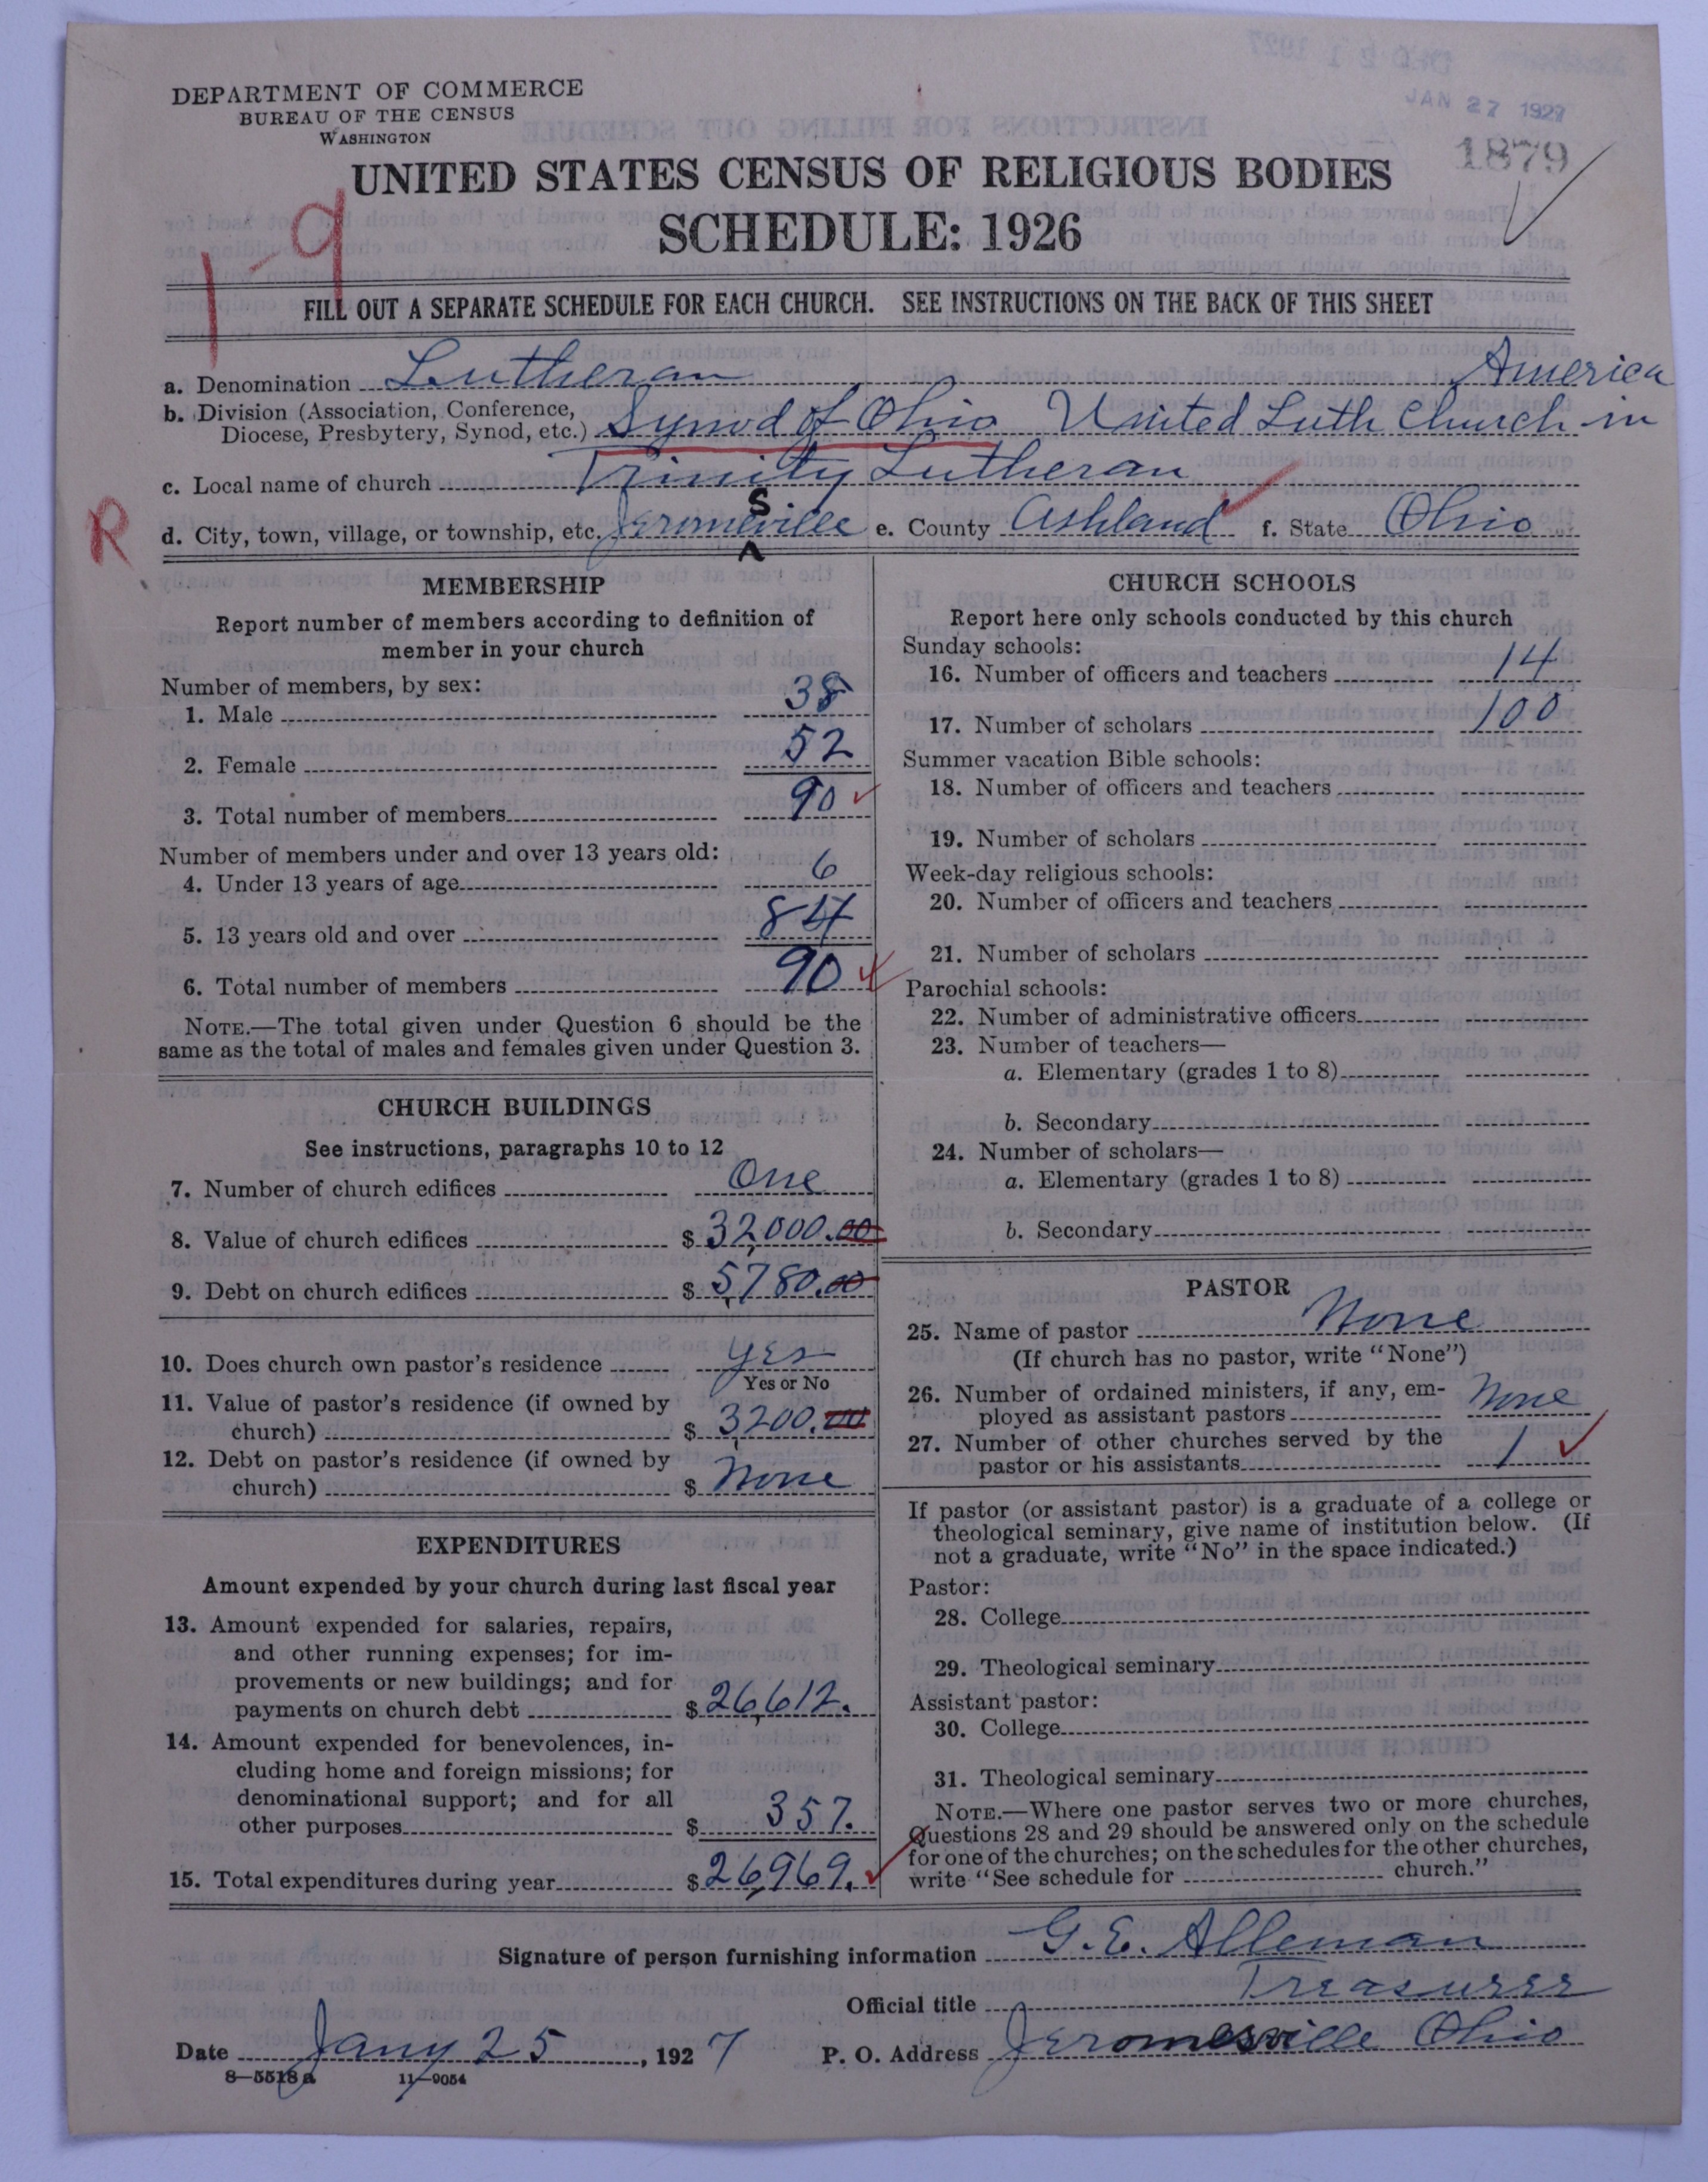 DEPARTMENT OF COMMERCE
BUREAU OF THE CENSUS
WASHINGTON
JAN 27 1927
1879
UNITED STATES CENSUS OF RELIGIOUS BODIES
SCHEDULE: 1926
1-9
FILL OUT A SEPARATE SCHEDULE FOR EACH CHURCH. SEE INSTRUCTIONS ON THE BACK OF THIS SHEET
a. Denomination Lutheran America
b. Division (Association, Conference,
Diocese, Presbytery, Synod, etc.) Synod of Ohio United Luth Church in
c. Local name of church Trinity Lutheran
R
d. City, town, village, or township, etc. Jeromeville e. County Ashland f. State Ohio
S
MEMBERSHIP
Report number of members according to definition of
member in your church
Number of members, by sex:
1. Male 38
2. Female 52
3. Total number of members 90
Number of members under and over 13 years old:
4. Under 13 years of age 6
5. 13 years old and over 84
6. Total number of members 90
NOTE.—The total given under Question 6 should be the
same as the total of males and females given under Question 3.
CHURCH BUILDINGS
See instructions, paragraphs 10 to 12
7. Number of church edifices One
8. Value of church edifices $ 32,000.00
9. Debt on church edifices $ 5,780.00
10. Does church own pastor's residence yes
Yes or No
11. Value of pastor's residence (if owned by
church) $ 3,200.00
12. Debt on pastor's residence (if owned by
church) $ None
EXPENDITURES
Amount expended by your church during last fiscal year
13. Amount expended for salaries, repairs,
and other running expenses; for im-
provements or new buildings; and for
payments on church debt $ 26,612.
14. Amount expended for benevolences, in-
cluding home and foreign missions; for
denominational support; and for all
other purposes $ 357.
15. Total expenditures during year $ 26,969.
CHURCH SCHOOLS
Report here only schools conducted by this church
Sunday schools:
16. Number of officers and teachers 14
17. Number of scholars 100
Summer vacation Bible schools:
18. Number of officers and teachers
19. Number of scholars
Week-day religious schools:
20. Number of officers and teachers
21. Number of scholars
Parochial schools:
22. Number of administrative officers
23. Number of teachers—
a. Elementary (grades 1 to 8)
b. Secondary
24. Number of scholars—
a. Elementary (grades 1 to 8)
b. Secondary
PASTOR
25. Name of pastor None
(If church has no pastor, write "None")
26. Number of ordained ministers, if any, em-
ployed as assistant pastors None
27. Number of other churches served by the
pastor or his assistants 1
If pastor (or assistant pastor) is a graduate of a college or
theological seminary, give name of institution below. (If
not a graduate, write "No" in the space indicated.)
Pastor:
28. College
29. Theological seminary
Assistant pastor:
30. College
31. Theological seminary
NOTE.—Where one pastor serves two or more churches,
Questions 28 and 29 should be answered only on the schedule
for one of the churches; on the schedules for the other churches,
write "See schedule for church."
Signature of person furnishing information G. E. Alleman
Official title Treasurer
Date Jany 25, 1927 P. O. Address Jeromesville Ohio
8—5518 a 11—9054